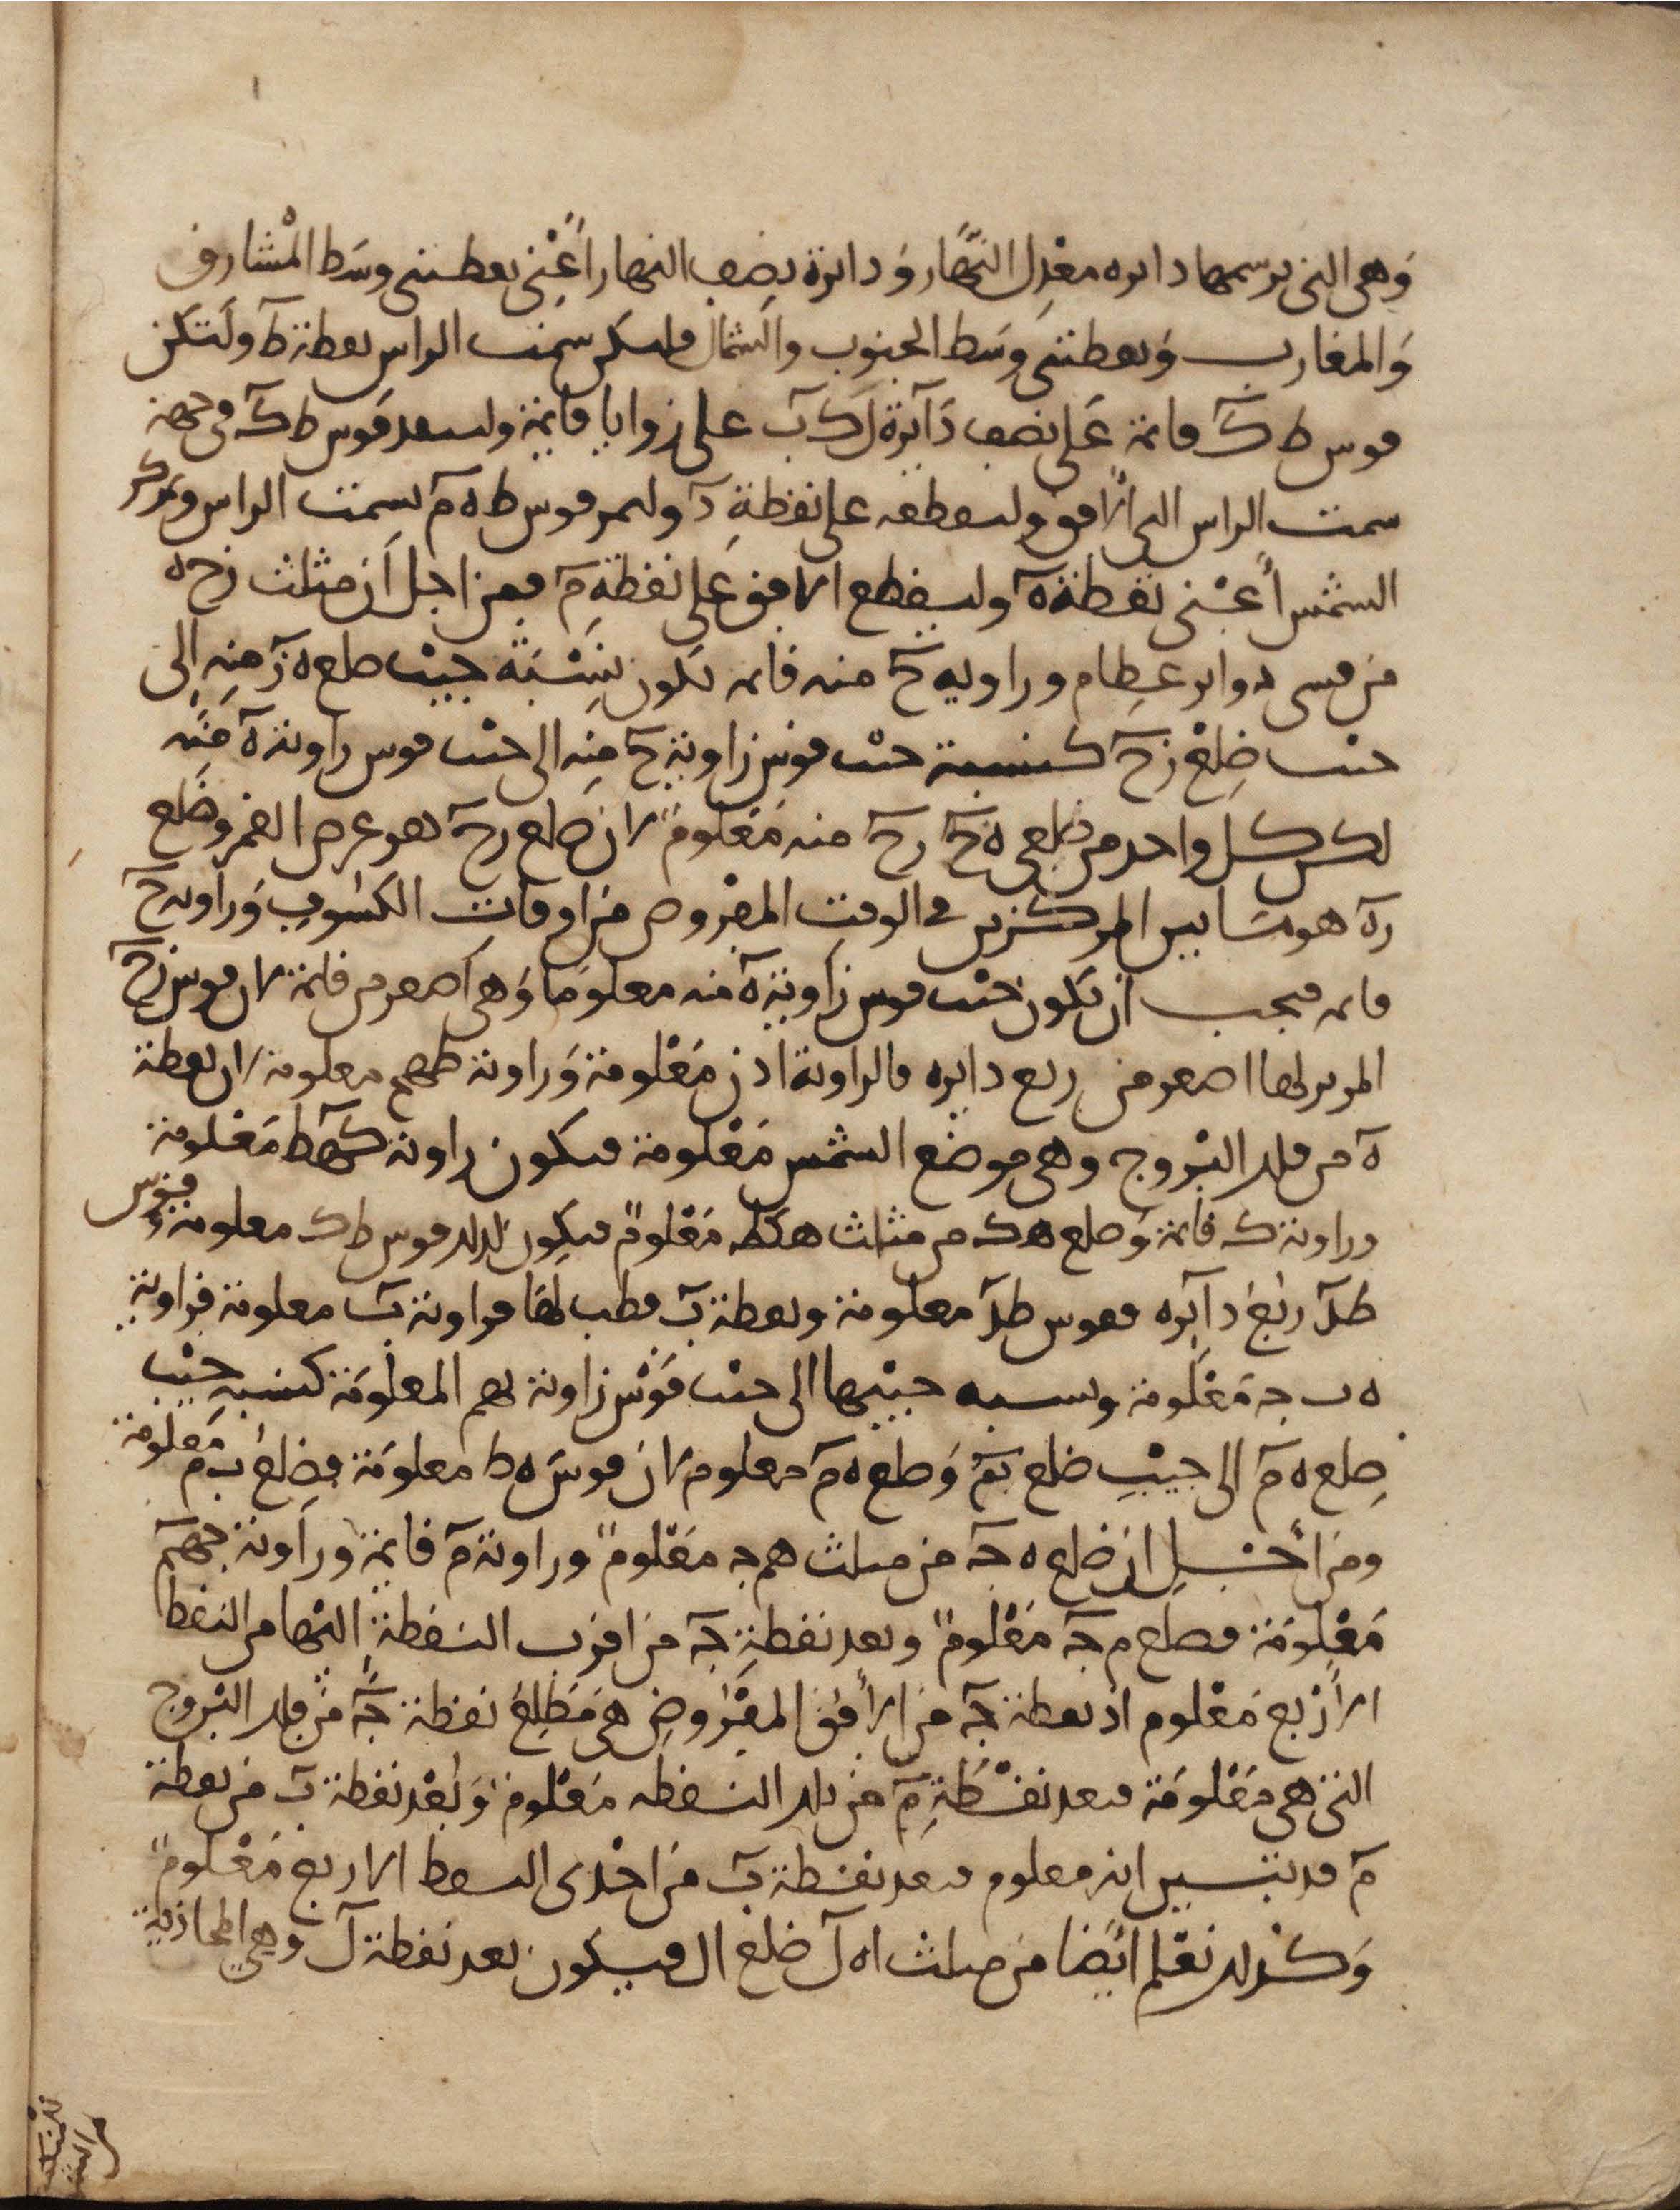 وهي التي ترسمها دايره معدل النهار ودايرة نصف النهار أعني نقطتي وسط المشارق
والمغارب ونقطتي وسط الجنوب والشمال وليكن سمت الراس نقطة ط ولتكن
قوس ط ك قائمة على نصف دايرة ل ك ب على زوايا قايمة ولينفذ قوس ط ك في جهة
سمت الراس الى الافق وليقطعه على نقطة د وليمر قوس ط ه م بسمت الراس ومركز
الشمس أعني نقطة ه وليقطع الافق على نقطة م فمن اجل ان مثلث ز ح ه
من قسي دواير عظام وزاويه ح منه قايمه تكون نسبة جيب ضلع ه ز منه الى
جيب ضلع ز ح كنسبة جيب قوس زاوية ح منه الى جيب قوس زاوية ه منه
لكن كل واحد من ضلعي ه ز ز ح منه معلوم لان ضلع ز ح هو عرض القمر وضلع
ز ه هو ما بين المركزين في الوقت المفروض من اوقات الكسوف وزاوية ح
قايمه فيجب ان تكون جيب قوس زاوية ه منه معلوما وهي اصغر من قايمة لان قوس ز ح
الموتر لها اصغر من ربع دايره فالزاوية اذن معلومة وزاوية ط ه ج معلومة لان نقطة
ه من فلك البروج وهي موضع الشمس معلومة فيكون زاوية ك ه ط معلومة
وزاوية ك قايمة وضلع ه ك من مثلث ه ك ط معلوم فيكون لذلك قوس ط ك معلومة وقوس
ط د ربع دايره فقوس ط د معلومة ونقطة ب قطب لها فزاوية ب معلومة فزاوية
ه ب ج معلومة ونسبه جيبها الى جيب قوس زاوية ب ه م المعلومة كنسبة جيب
ضلع ه م الى جيب ضلع ب م وضلع ه م معلوم لان قوس ه ط معلومة فضلع ب م معلومة
ومن أجل ان ضلع ه ج من مثلث ه م ج معلوم وزاوية م قايمة وزاوية ج ه م
معلومة فضلع م ج معلوم وبعد نقطة ج من اقرب النقطة اليها من النقط
الأربع معلوم اذ نقطة ج من الأفق المفروض هي مطلع نقطة ج من فلك البروج
التي هي معلومة فبعد نقطة م من تلك النقطه معلوم وبعد نقطة ب من نقطة
م قد تبين انه معلوم فبعد نقطة ب من احدى النقط الاربع معلوم
وكذلك نعلم ايضا من مثلث ا ه ل ضلع ا ل فيكون بعد نقطة ل وهي المحاذية